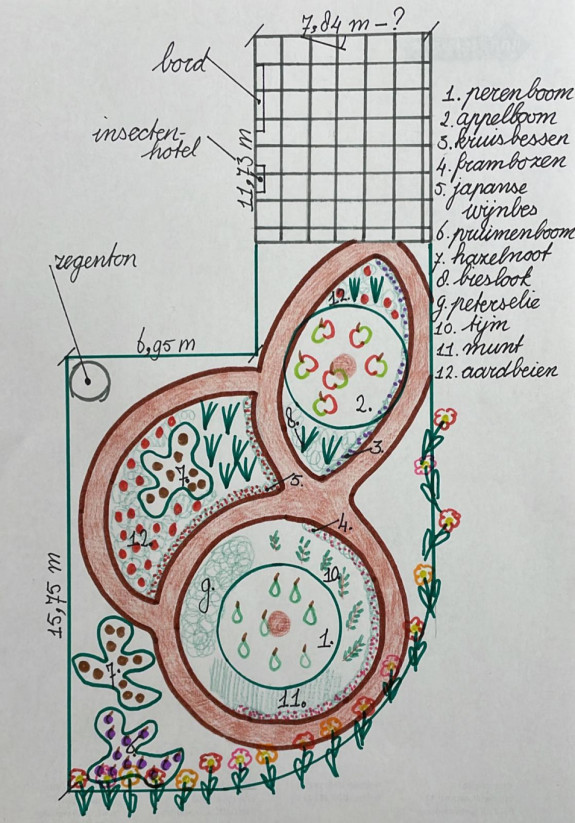 7,84 m - ?
bord
insecten-
hotel
11,73 m
1. perenboom
2. appelboom
3. kruisbessen
4. frambozen
5. japanse
wijnbes
6. pruimenboom
7. hazelnoot
8. bieslook
9. peterselie
10. tijm
11. munt
12. aardbeien
regenton
6,95 m
12.
2.
8.
3.
7.
5.
12.
4.
9.
10.
1.
15,75 m
7.
11.